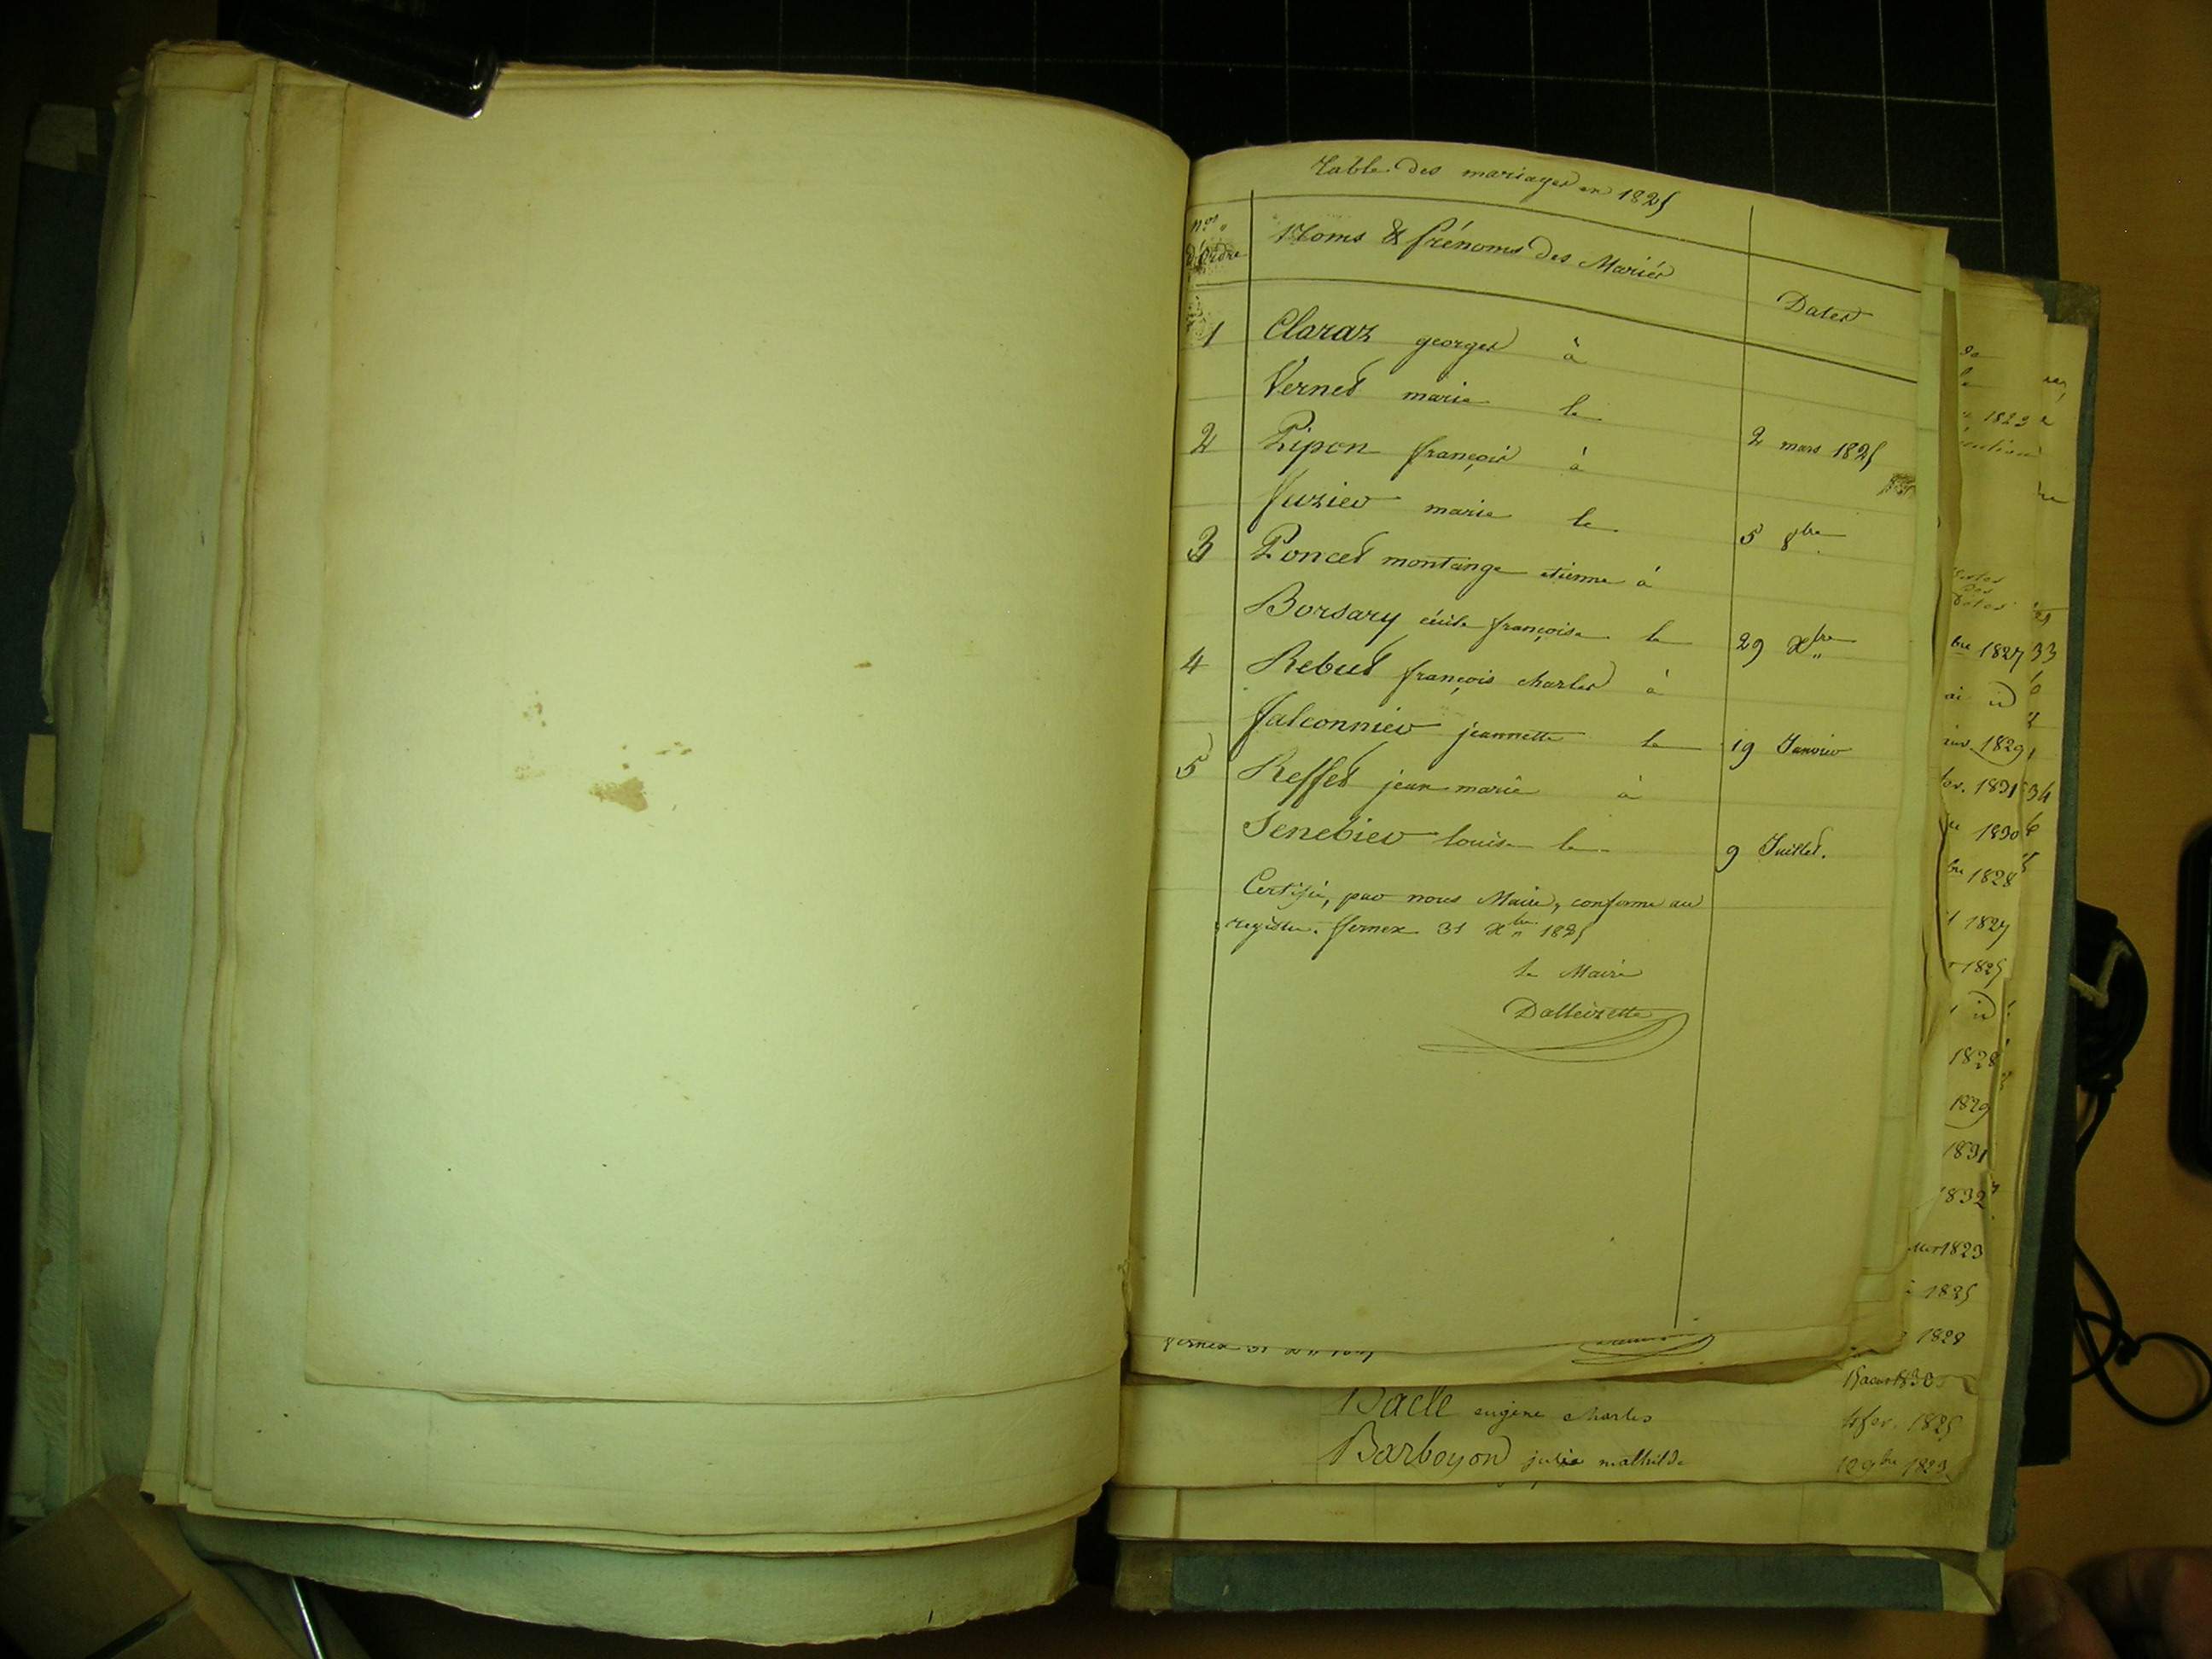 Table des mariages en 1825
Nos d'ordre
Noms & prénoms des Mariés
Dates
1 Claraz georges à
Vernet marie le 2 mars 1825
2 Pipon françois à
Fuzier marie le 5 8bre
3 Poncet montange etienne à
Borsary cécile françoise le 29 Xbre
4 Rebut françois charles à
falconnier jeannette le 19 Janvier
5 Reffet jean marie à
Senebier louise le 9 Juillet.
Certifié, par nous Maire, conforme au
registre. fernex 31 Xbre 1825
le Maire
Dalleizette
Bacle eugène charles fev. 1825
Barboyon julie mathilde 12 9bre 1823
1823
1827 33
1829
1831 34
1830
1828
1827
1825
1828
1829
1831
1832
1823
1825
1828